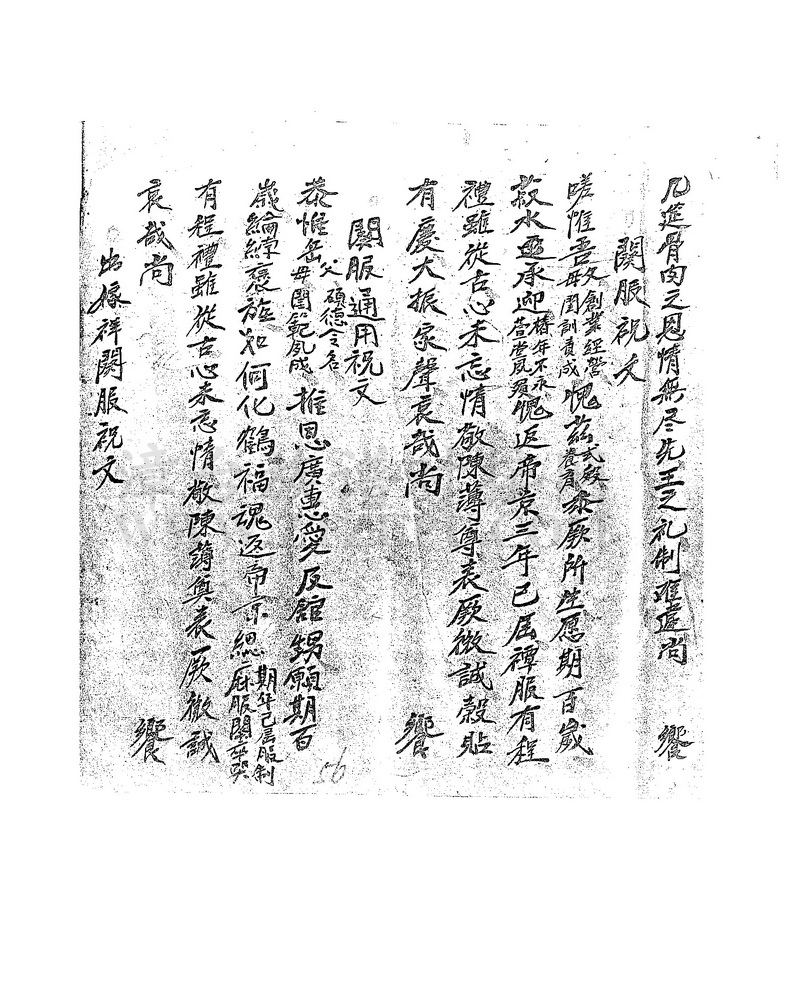 凡筵骨肉之恩情無尽先王之礼制难違尚 饗
闋服祝文
嗟惟吾父創業經營母閨訓素成愧茲式穀養育忝厥所生愿期百歲
菽水亟承迎椿年不永萱堂風殞愧返帝京三年已屆禫服有程
禮雖從古心未忘情敬陳薄尊表厥微誠穀貽
有慶大振家聲哀哉尚 饗
闋服通用祝文
恭惟岳父碩德令名母閨範夙成推恩廣惠愛及館甥願期百
歲綸綍褒旌如何化鶴福魂返帝京期年已屆服制緦麻服闋
有程禮雖從古心未忘情敬陳薄奠表厥微誠
哀哉尚 饗
出嫁祥闋服祝文
56